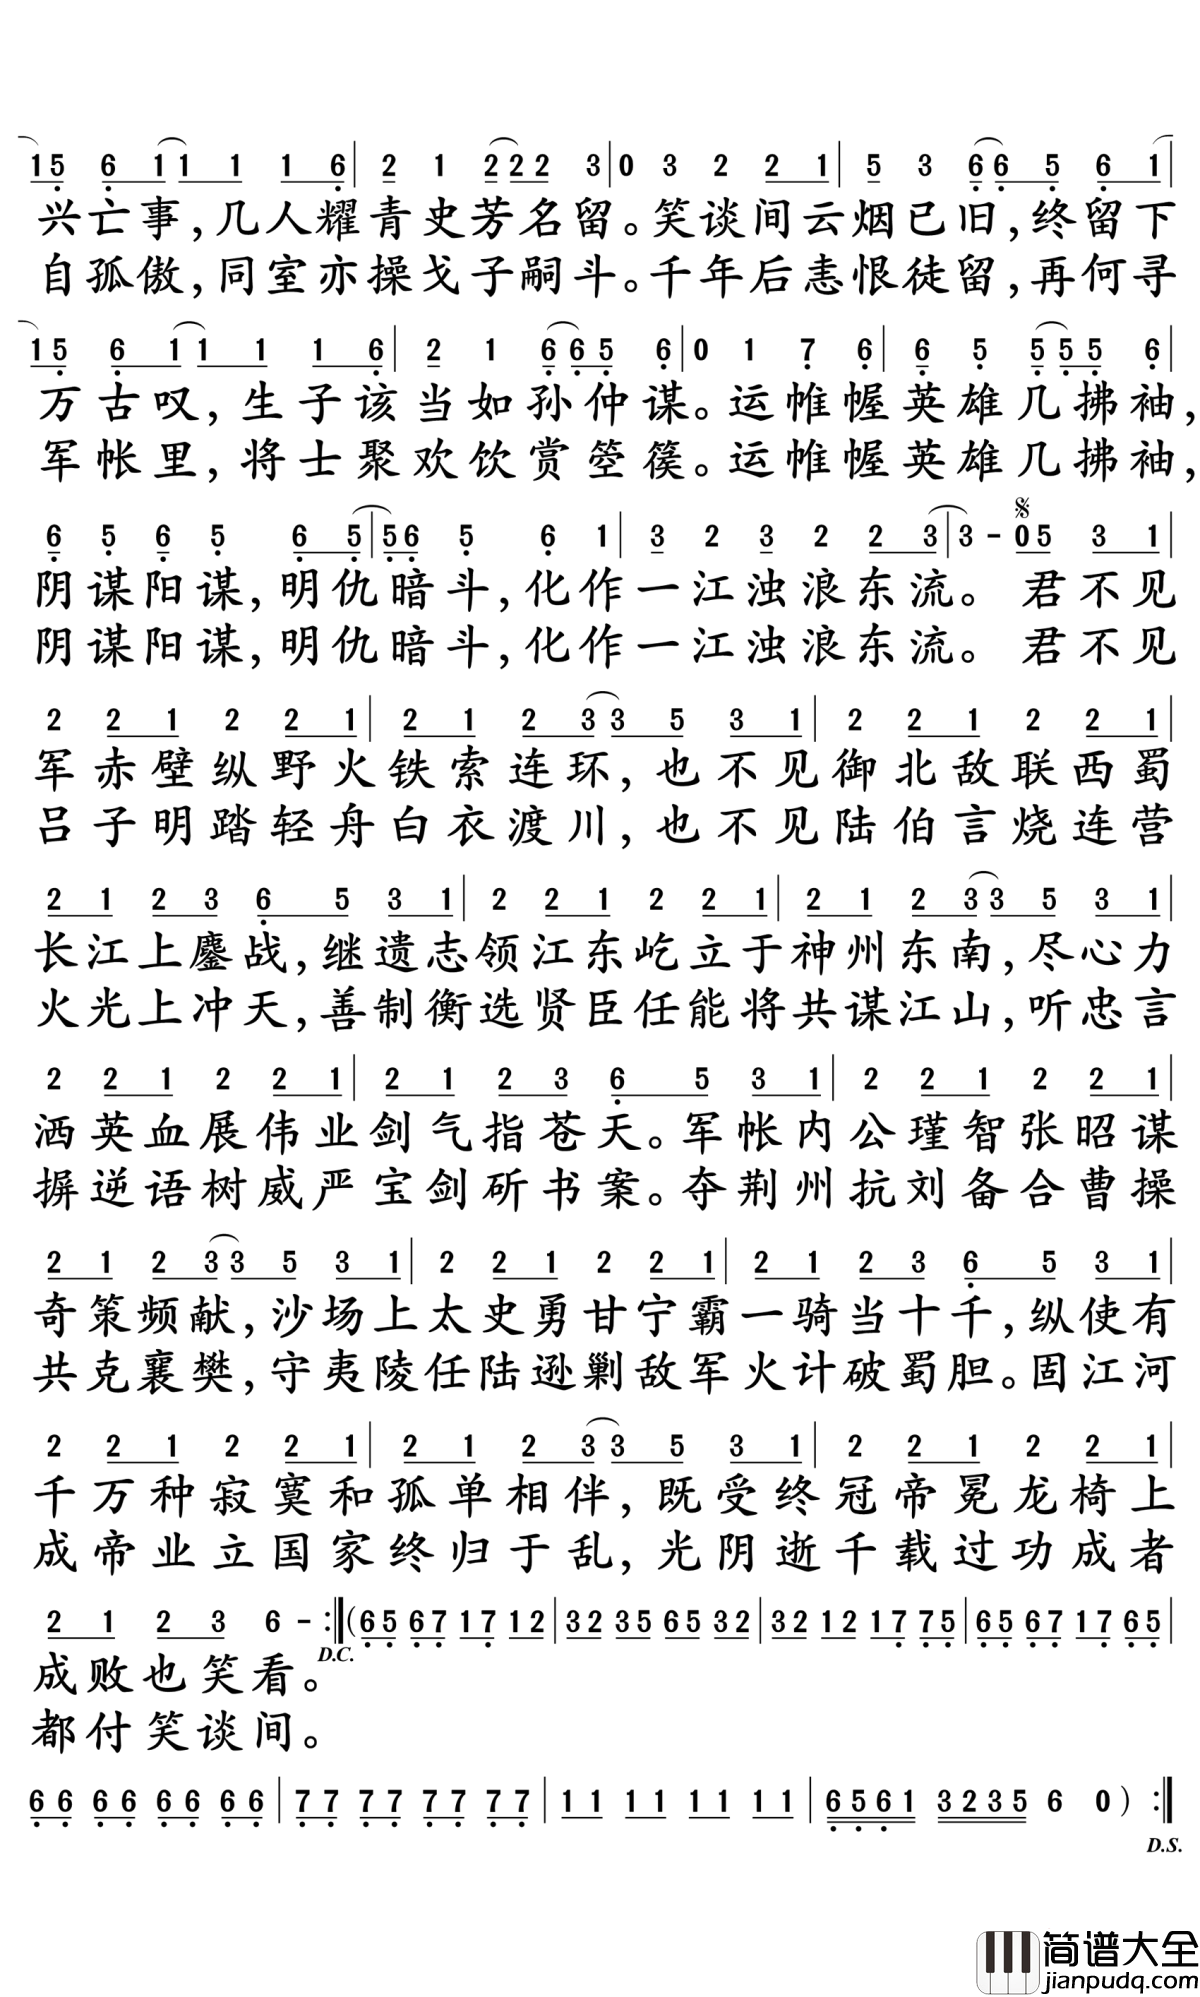 1 5 6 1 1 1 1 6 | 2 1 2 2 2 3 | 0 3 2 2 1 | 5 3 6 6 5 6 1 |
兴亡事,几人耀青史芳名留。笑谈间云烟已旧,终留下
自孤傲,同室亦操戈子嗣斗。千年后恚恨徒留,再何寻
1 5 6 1 1 1 1 6 | 2 1 6 6 5 6 | 0 1 7 6 | 6 5 5 5 5 6 |
万古叹,生子该当如孙仲谋。运帷幄英雄几拂袖,
军帐里,将士聚欢饮赏箜篌。运帷幄英雄几拂袖,
6 5 6 5 6 5 | 5 6 5 6 1 | 3 2 3 2 2 3 | 3 - 0 5 3 1 |
阴谋阳谋,明仇暗斗,化作一江浊浪东流。君不见
阴谋阳谋,明仇暗斗,化作一江浊浪东流。君不见
2 2 1 2 2 1 | 2 1 2 3 3 5 3 1 | 2 2 1 2 2 1 |
军赤壁纵野火铁索连环,也不见御北敌联西蜀
吕子明踏轻舟白衣渡川,也不见陆伯言烧连营
2 1 2 3 6 5 3 1 | 2 2 1 2 2 1 | 2 1 2 3 3 5 3 1 |
长江上鏖战,继遗志领江东屹立于神州东南,尽心力
火光上冲天,善制衡选贤臣任能将共谋江山,听忠言
2 2 1 2 2 1 | 2 1 2 3 6 5 3 1 | 2 2 1 2 2 1 |
洒英血展伟业剑气指苍天。军帐内公瑾智张昭谋
摒逆语树威严宝剑斫书案。夺荆州抗刘备合曹操
2 1 2 3 3 5 3 1 | 2 2 1 2 2 1 | 2 1 2 3 6 5 3 1 |
奇策频献,沙场上太史勇甘宁霸一骑当十千,纵使有
共克襄樊,守夷陵任陆逊剿敌军火计破蜀胆。固江河
2 2 1 2 2 1 | 2 1 2 3 3 5 3 1 | 2 2 1 2 2 1 |
千万种寂寞和孤单相伴,既受终冠帝冕龙椅上
成帝业立国家终归于乱,光阴逝千载过功成者
2 1 2 3 6 - :‖ ( 6 5 6 7 1 7 1 2 | 3 2 3 5 6 5 3 2 | 3 2 1 2 1 7 7 5 | 6 5 6 7 1 7 6 5 |
D.C.
成败也笑看。
都付笑谈间。
6 6 6 6 6 6 6 6 | 7 7 7 7 7 7 7 7 | 1 1 1 1 1 1 1 1 | 6 5 6 1 3 2 3 5 6 0 ) :‖
D.S.
简谱大全
jianpudq.com